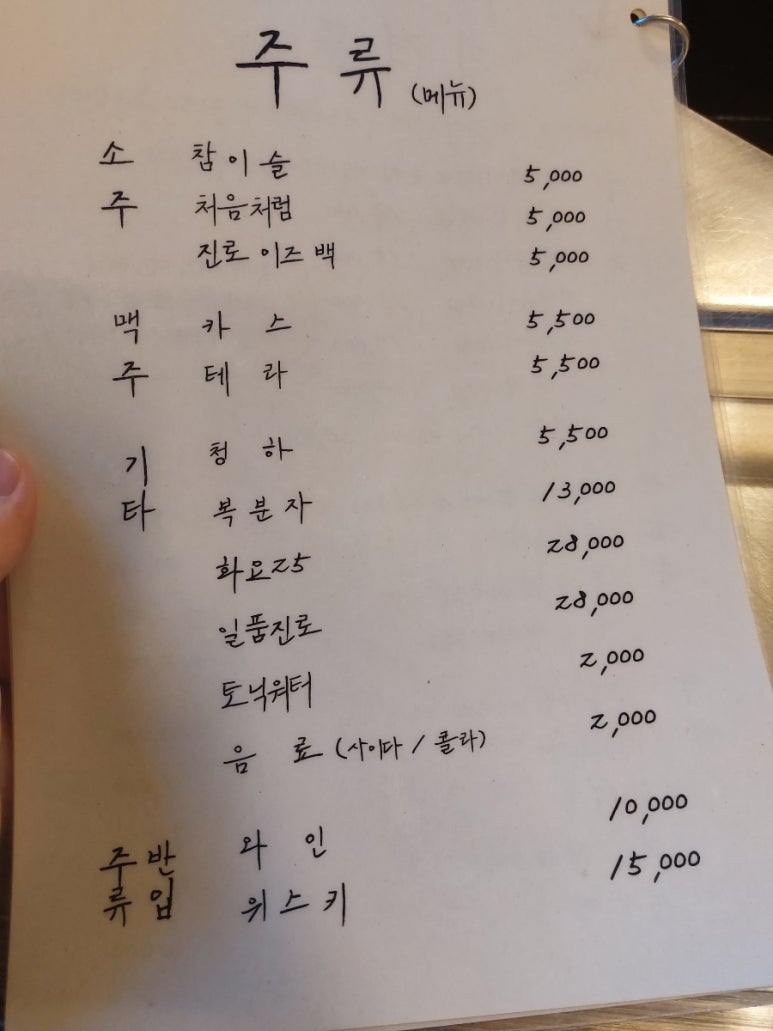 주 류 (메뉴)
소 참이슬 5,000
주 처음처럼 5,000
진로 이즈 백 5,000
맥 카 스 5,500
주 테 라 5,500
기 청 하 5,500
타 복분자 13,000
화요25 28,000
일품진로 28,000
토닉워터 2,000
음 료 (사이다 / 콜라) 2,000
주 반 와 인 10,000
류 입 위스키 15,000